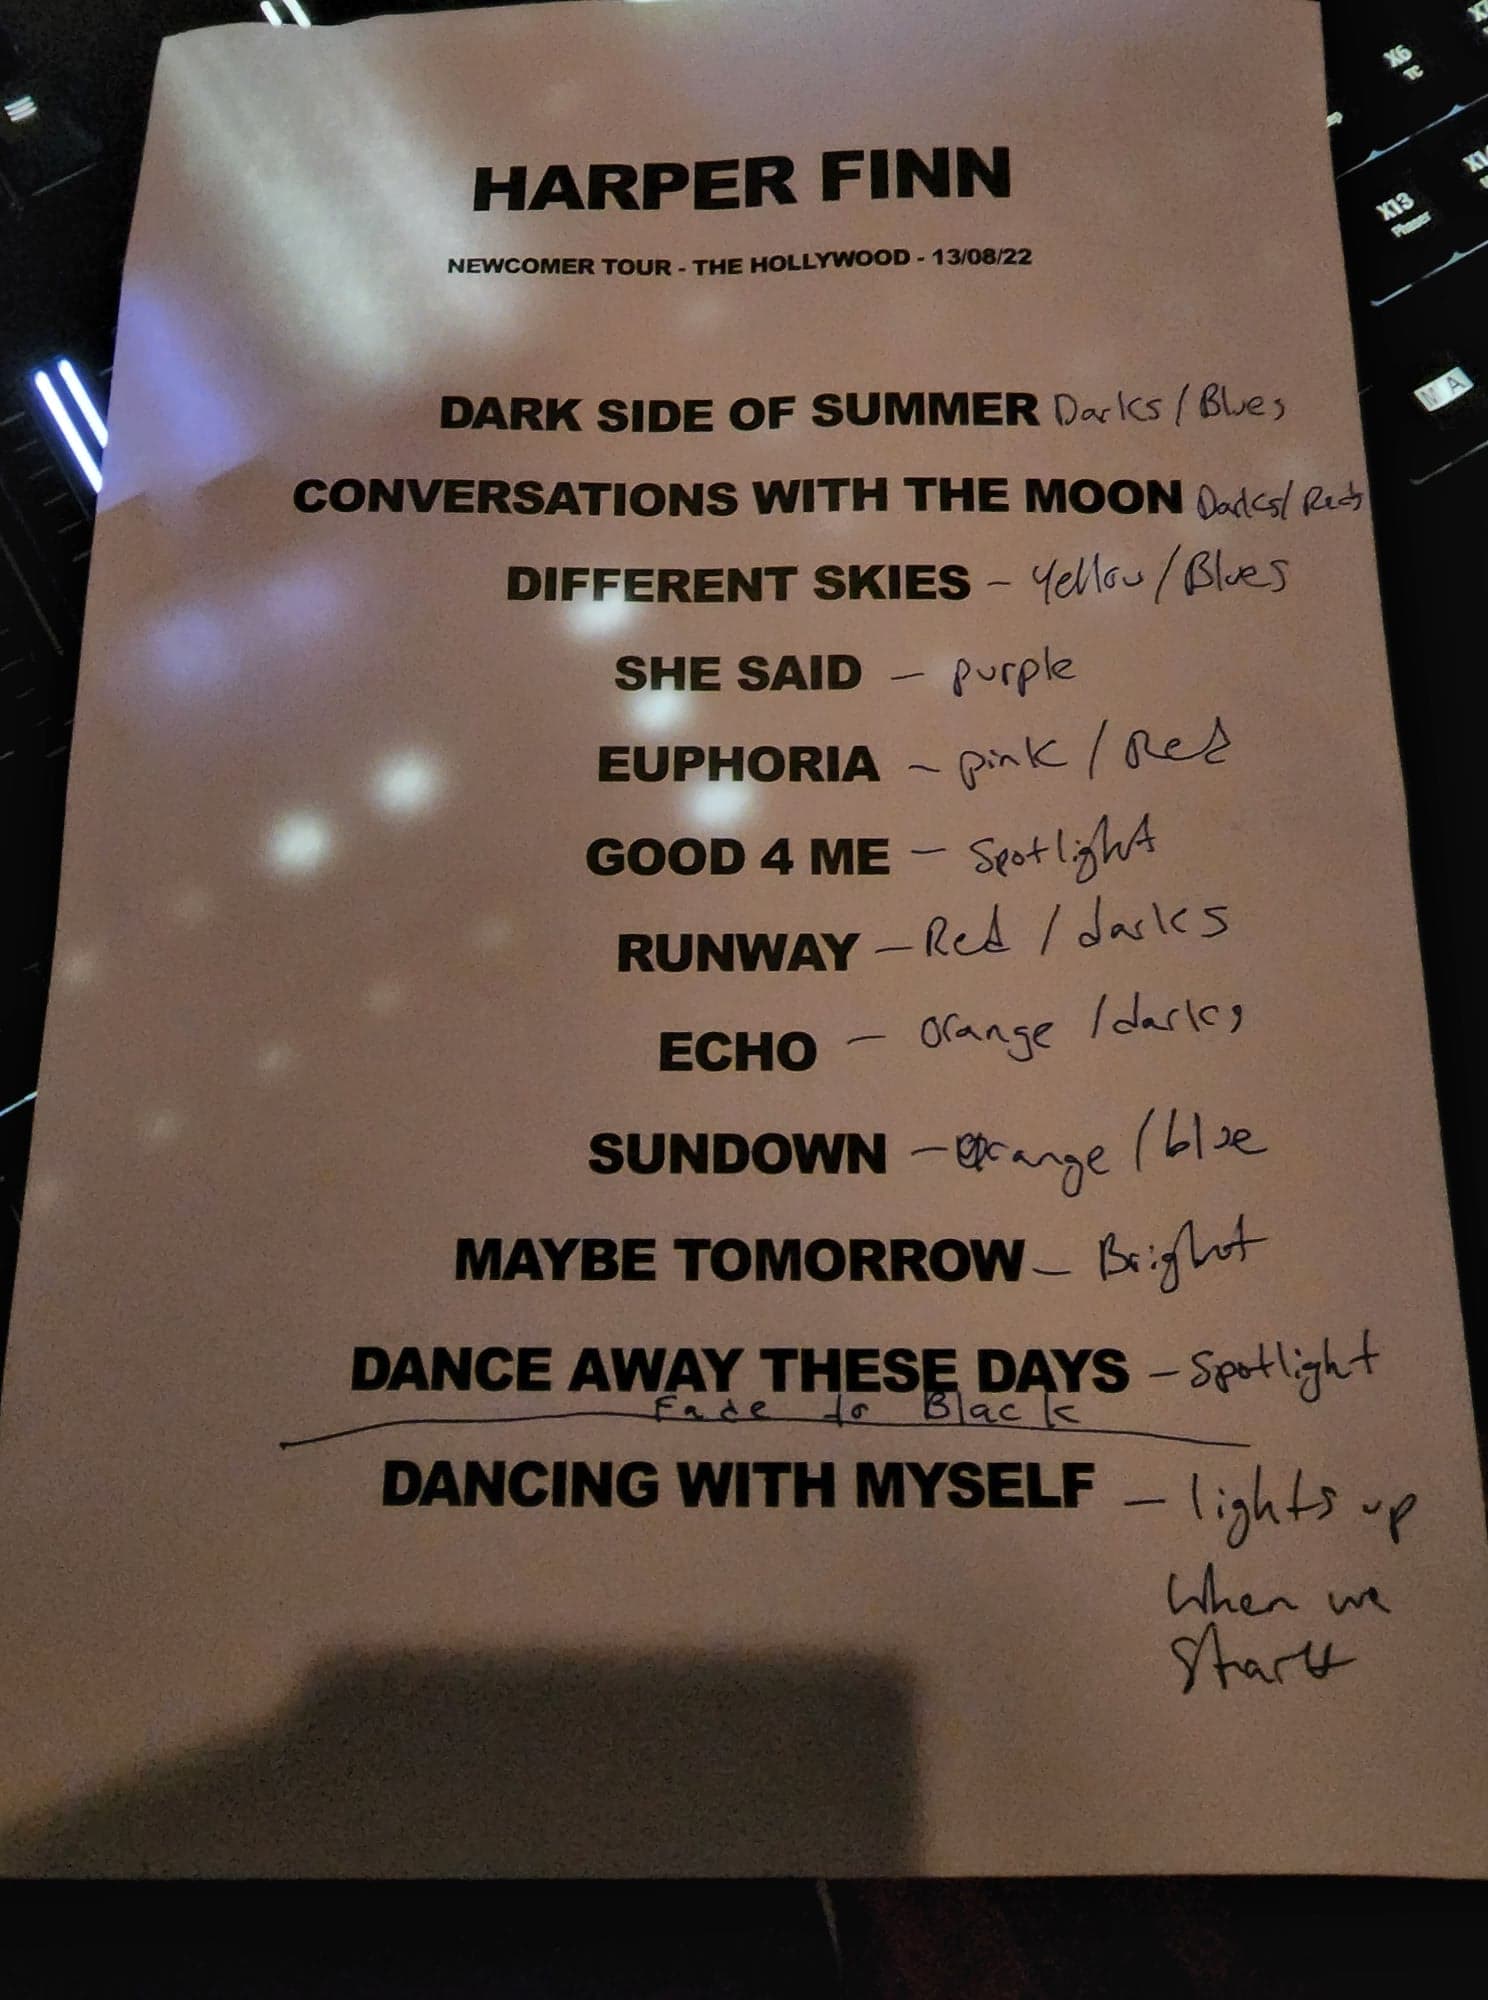 HARPER FINN
NEWCOMER TOUR - THE HOLLYWOOD - 13/08/22
DARK SIDE OF SUMMER Darks / Blues
CONVERSATIONS WITH THE MOON Darks / Reds
DIFFERENT SKIES - Yellow / Blues
SHE SAID - purple
EUPHORIA - pink / Red
GOOD 4 ME - Spotlight
RUNWAY - Red / darks
ECHO - orange / darks
SUNDOWN - orange / blue
MAYBE TOMORROW - Bright
DANCE AWAY THESE DAYS - Spotlight
Fade to Black
DANCING WITH MYSELF - lights up
when we
start
X6
TC
X13
Phaser
MA